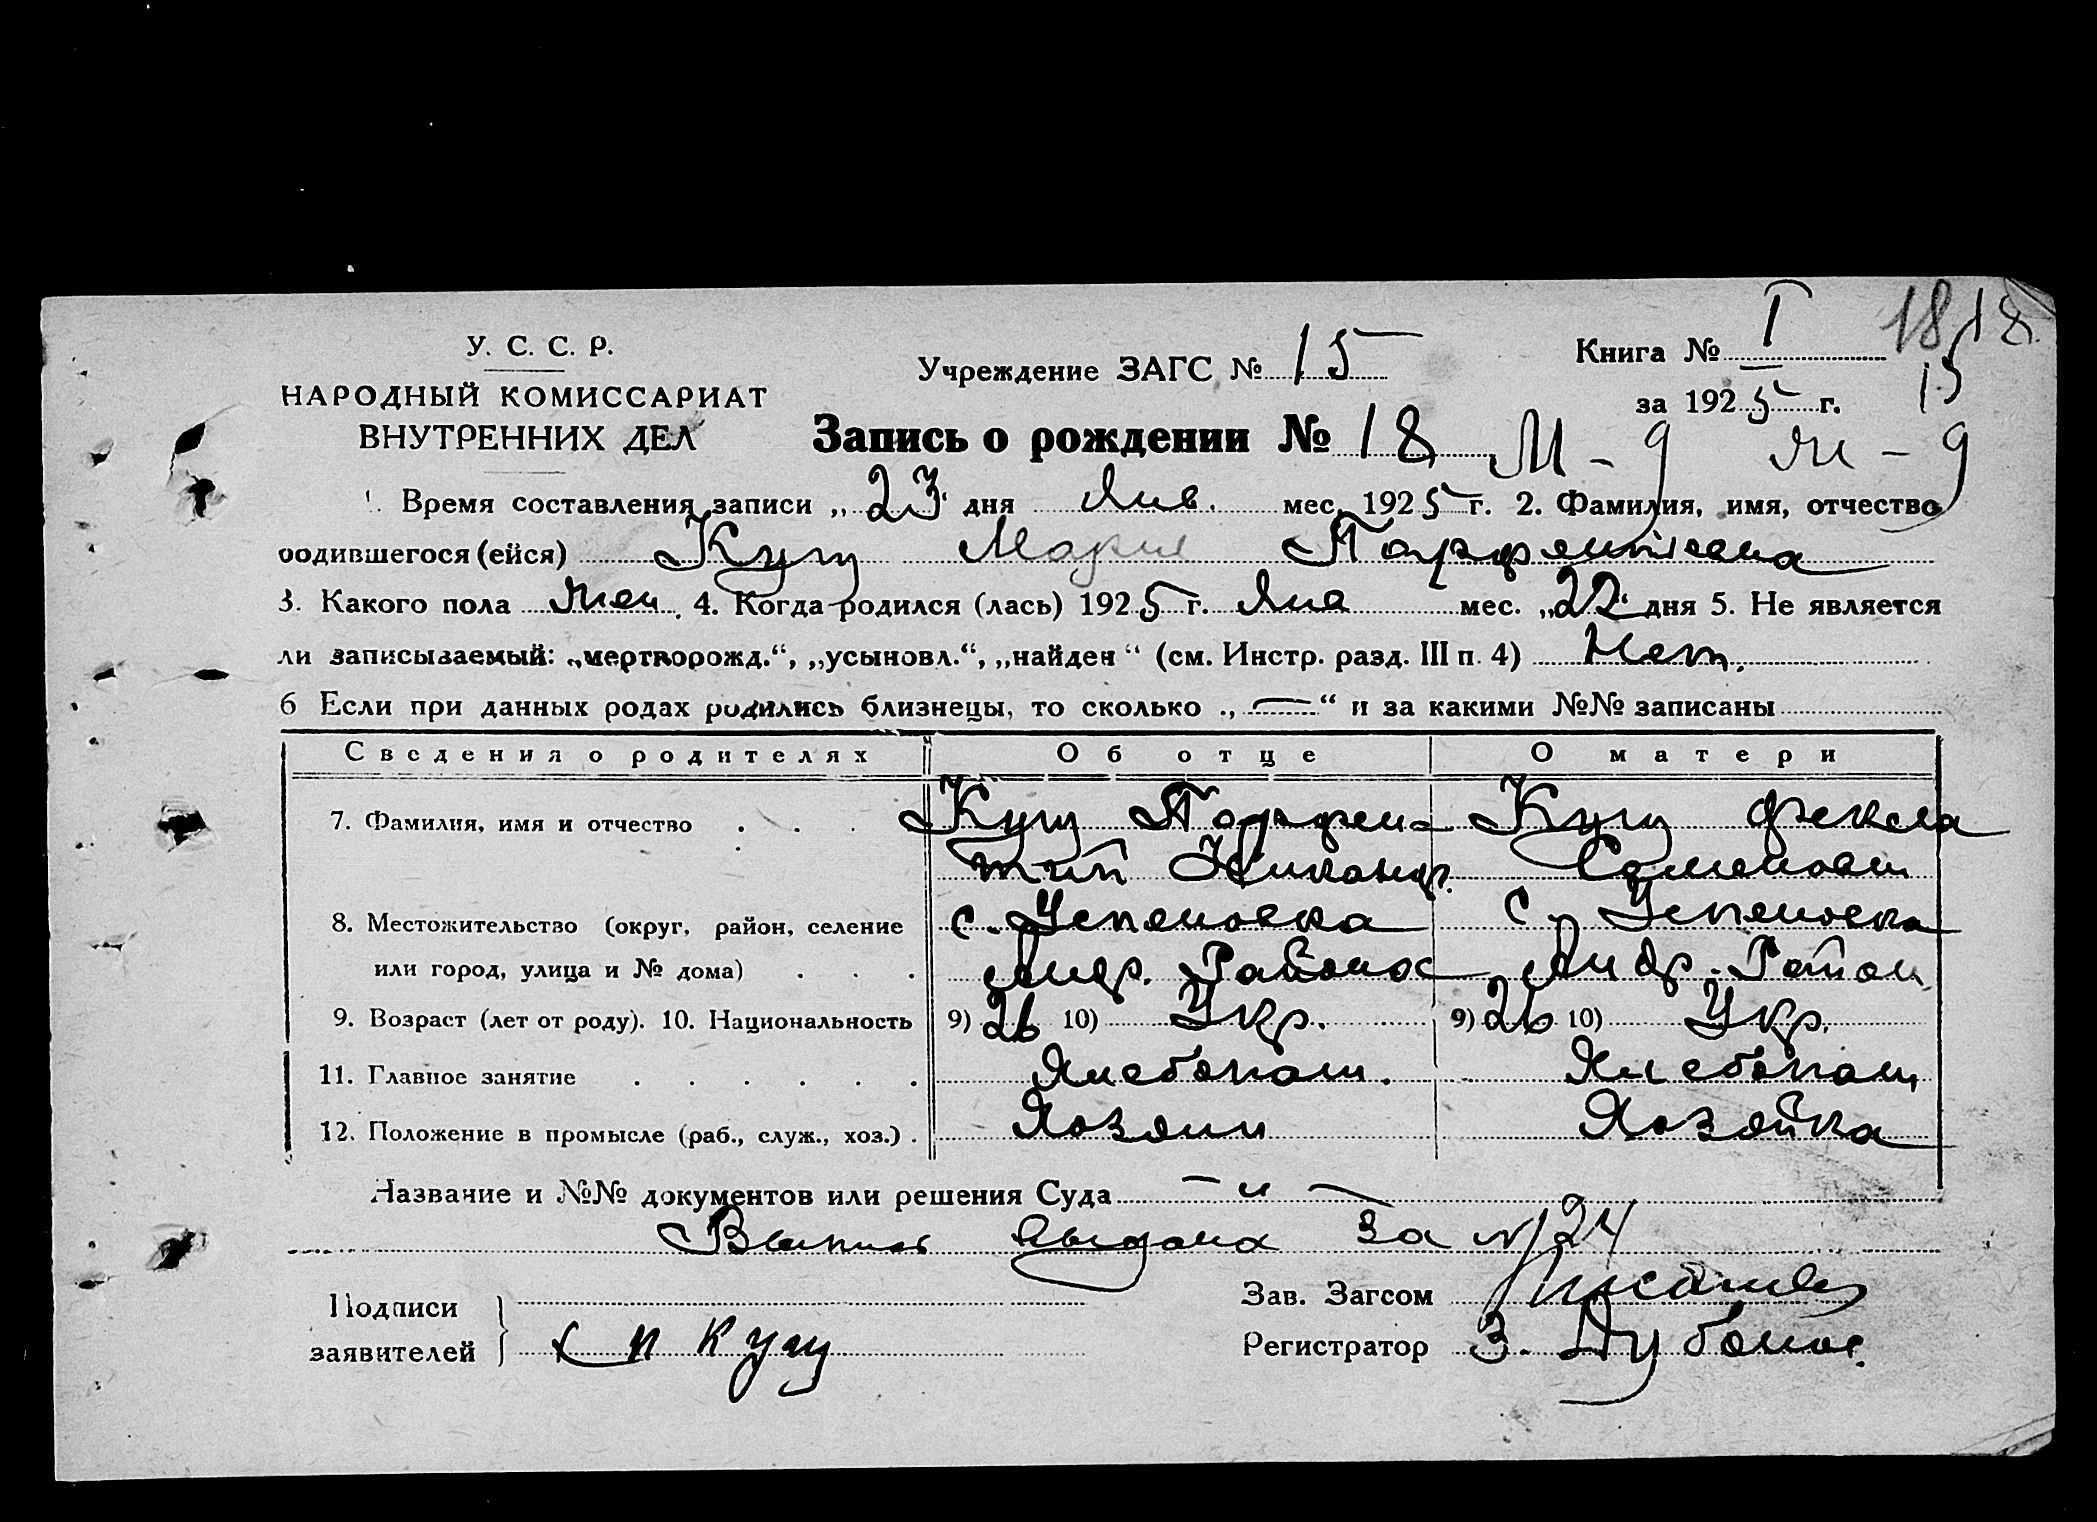 У. С. С. Р.
НАРОДНЫЙ КОМИССАРИАТ
ВНУТРЕННИХ ДЕЛ
Учреждение ЗАГС № 15
Книга № I 18 18
за 1925 г. 15
Запись о рождении № 18 М - 9 М - 9
1. Время составления записи „23“ дня Янв. мес. 1925 г. 2. Фамилия, имя, отчество
родившегося (ейся) Кущ Мария
3. Какого пола жен. 4. Когда родился (лась) 1925 г. Янв мес. „22“ дня 5. Не является
ли записываемый: „мертворожд.“, „усыновл.“, „найден“ (см. Инстр. разд. III п. 4) Нет.
6 Если при данных родах родились близнецы, то сколько „—“ и за какими №№ записаны
Сведения о родителях Об отце О матери
7. Фамилия, имя и отчество . . . Кущ Парфен- Кущ Фекла
тий Никанор. Семеновн
8. Местожительство (округ, район, селение с. Успеновка с. Успеновка
или город, улица и № дома) . . . Андр. Района Андр. Район
9. Возраст (лет от роду). 10. Национальность 9) 26 10) Укр. 9) 26 10) Укр.
11. Главное занятие . . . . . . Хлебопаш. Хлебопаш
12. Положение в промысле (раб., служ., хоз.) . Хозяин Хозяйка
Название и №№ документов или решения Суда — " —
Выпись выдана за № 24
Подписи
заявителей П Кущ
Зав. Загсом
Регистратор З. Дубов